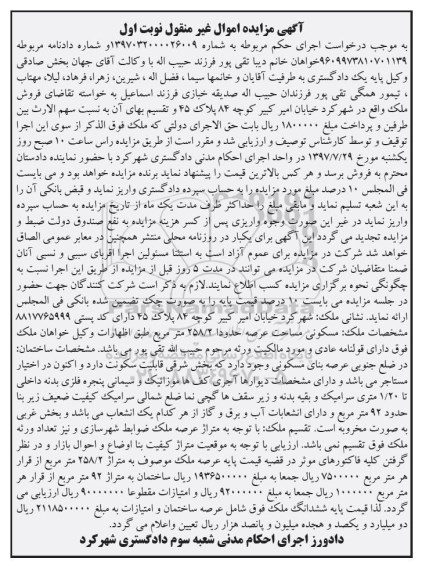 آگهی مزایده اموال غیر منقول نوبت اول
به موجب درخواست اجرای حکم مربوطه به شماره ۱۳۹۷۰۳۲۰۰۰۰۲۶۰۰۹و شماره دادنامه مربوطه
۹۶۰۹۹۷۳۸۱۰۷۰۱۱۳۹خواهان خانم دیبا تقی پور فرزند حبیب اله با وکالت آقای جهان بخش صادقی
وکیل پایه یک دادگستری به طرفیت آقایان و خانمها سیما ، فضل اله ، شیرین، زهرا، فرهاد، لیلا، مهتاب
، تیمور همگی تقی پور فرزندان حبیب اله صدیقه خبازی فرزند اسماعیل به خواسته تقاضای فروش
ملک واقع در شهرکرد خیابان امیر کبیر کوچه ۸۴ پلاک ۴۵ و تقسیم بهای آن به نسبت سهم الارث بین
طرفین و پرداخت مبلغ ۱۸۰۰۰۰۰ ریال بابت حق الاجرای دولتی که ملک فوق الذکر از سوی این اجرا
توقیف و توسط کارشناس توصیف و ارزیابی شد و مقرر است از طریق مزایده راس ساعت ۱۰ صبح روز
یکشنبه مورخ ۱۳۹۷/۷/۲۹ در واحد اجرای احکام مدنی دادگستری شهرکرد با حضور نماینده دادستان
محترم به فروش برسد و هر کس بالاترین قیمت را پیشنهاد نماید برنده مزایده خواهد بود و می بایست
فی المجلس ۱۰ درصد مبلغ مورد مزایده را به حساب سپرده دادگستری واریز نماید و قبض بانکی آن را
به این شعبه تسلیم نماید و مابقی مبلغ را حداکثر ظرف مدت یک ماه از تاریخ مزایده به حساب سپرده
واریز نماید در غیر این صورت وجوه واریزی پس از کسر هزینه مزایده به نفع صندوق دولت ضبط و
مزایده تجدید می گردد این آگهی برای یکبار در روزنامه محلی منتشر همچنین در معابر عمومی الصاق
خواهد شد شرکت در مزایده برای عموم آزاد است به استثنا مسئولین اجرا اقربای سببی و نسبی آنان
ضمنا متقاضیان شرکت در مزایده می توانند در مدت ۵ روز قبل از مزایده از طریق این اجرا نسبت به
چگونگی نحوه برگزاری مزایده کسب اطلاع نمایند.لازم به ذکر است شرکت کنندگان جهت حضور
در جلسه مزایده می بایست ۱۰ درصد قیمت پایه را به صورت چک تضمین شده بانکی فی المجلس
ارائه نماید. نشانی ملک: شهرکرد خیابان امیر کبیر کوچه ۸۴ پلاک ۴۵ دارای کد پستی ۸۸۱۷۷۶۵۹۹۹
مشخصات ملک: مسکونی مساحت عرصه حدودا ۲۵۸/۲ متر مربع طبق اظهارات وکیل خواهان ملک
فوق دارای قولنامه عادی و مورد مالکیت ورثه مرحوم حبیب الله تقی پور می باشد. مشخصات ساختمان:
در ضلع جنوبی عرصه بنای مسکونی وجود دارد که بخش شرقی قابلیت سکونت دارد و اکنون در اختیار
مستاجر می باشد و دارای مشخصات دیوارها آجری کف ها موزائیک و سیمانی پنجره فلزی بدنه داخلی
تا ۱/۲۰ متری سرامیک و بقیه بدنه و زیر سقف ها گچی نما ضلع شمالی سرامیک کیفیت ضعیف زیر بنا
حدود ۹۲ متر مربع و دارای انشعابات آب و برق و گاز از هر کدام یک انشعاب می باشد و بخش غربی
به صورت مخروبه است. تقسیم ملک: با توجه به متراژ عرصه ملک ضوابط شهرسازی و نیز تعداد ورثه
ملک فوق تقسیم نمی باشد. ارزیابی با توجه به موقعیت متراژ کیفیت بنا اوضاع و احوال بازار و در نظر
گرفتن کلیه فاکتورهای موثر در قضیه قیمت پایه عرصه ملک موصوف به متراژ ۲۵۸/۲ متر مربع از قرار
هر متر مربع ۷۵۰۰۰۰۰ ریال جمعا به مبلغ ۱۹۳۶۵۰۰۰۰۰ ریال ساختمان به متراژ ۹۲ متر مربع از قرار هر
متر مربع ۱۰۰۰۰۰۰ ریال جمعا به مبلغ ۹۲۰۰۰۰۰۰ ریال و امتیازات مقطوعا ۹۰۰۰۰۰۰۰ ریال ارزیابی می
گردد. لذا قیمت پایه ششدانگ ملک فوق شامل عرصه ساختمان و امتیازات به مبلغ ۲۱۱۸۵۰۰۰۰۰ ریال
دو میلیارد و یکصد و هجده میلیون و پانصد هزار ریال تعیین واعلام می گردد.
دادورز اجرای احکام مدنی شعبه سوم دادگستری شهرکرد